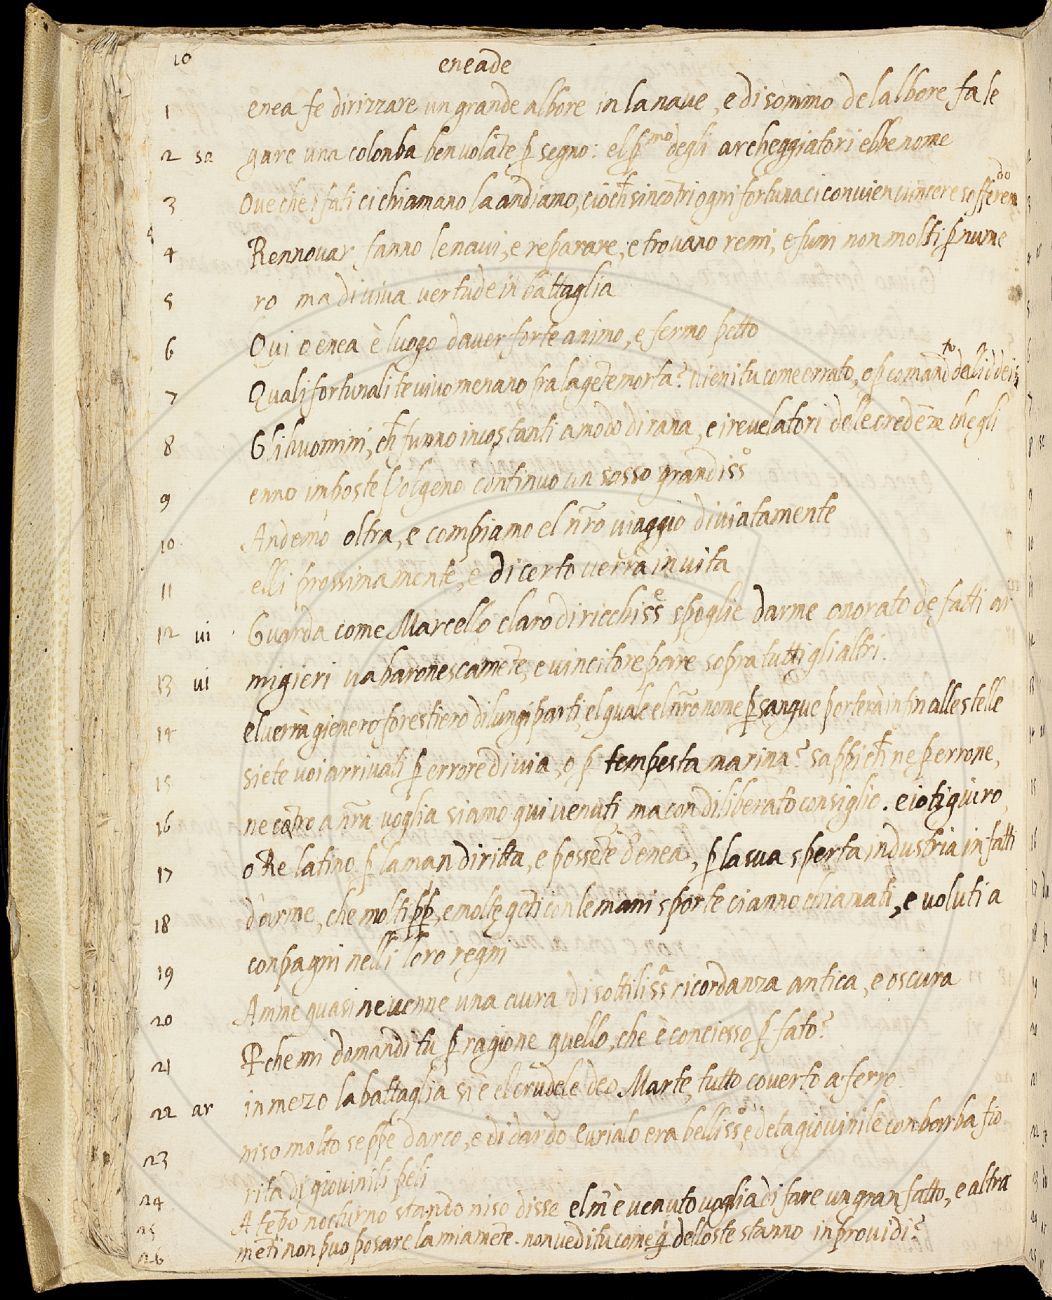 10
eneade
1 enea fe dirizzare un grande albore in la nave, e di sommo de lalbore fa le
2 sa gare una colonba ben volāte p̄ segno: el pmo degli archeggiatori ebbe nome
3 Ove che i fati ci chiamano la andiamo, cioch sincōtri ogni fortuna ci convien vincere sofferendo
4 Rennovar fanno le navi, e reparare, e trovano remi, e furn non molti p̄ nume
5 ro ma di viva vertude in battaglia
6 Qui o enea è luogo daver forte animo, e fermo petto
7 Quali fortunali te vivo menano fra la gēte morta? vieni tu come errato, o p̄ comandto
8 Gli huomini, ch̄ funno a modo di rana, e i revelatori dele credēze che gli
9 enno imposte volgeno continuo un sosso grandisso
10 Andemo oltra, e compiamo el nr̄o viaggio diviatamente
11 elli prossimamente, e di certo verrà in vita
12 vi Guarda come Marcello claro di ricchisse spoglie darme onorato de fatti ar
13 vi migieri va baronescamēte, e vincitore pare sopra tutti gli altri.
14 el verrà gienero forestiero di lungi parti el quale el nr̄o nome p̄ sangue porterà infin alle stelle
15 siete voi arrivati p̄ errore di via, o p̄ tempesta marina? sappi ch̄ ne p̄ errone,
16 ne a nr̄a voglia siamo qui venuti ma con diliberato consiglio. e io ti giuro
17 o Re latino p̄ la man diritta, e possēte d'enea, p̄ la sua sperta industria in fatti
18 d'arme, che molti pp., e molte gēti con le mani sporte ci anno chiamati, e voluti a
19 conpagni nelli loro regni
20 Amme quasi ne venne una cura di sottiliss ricordanza antica, e oscura
21 P̄che mi domandi tu p̄ ragione quello, che è conciesso p̄ fato?
22 ar in mezo la battaglia si e el crudele deo Marte, tutto coverto a ferro.
23 niso molto seppe d'arco, e di dardo Eurialo era bellisso, e de la giovinile con barba fio
24 rita di giovinili peli
25 A tēpo nocturno stando niso disse el m'è venuto voglia di fare un gran fatto, e altra
26 mēti non puo posare la mia mēte. non vedi tu come delloste stanno in providi?